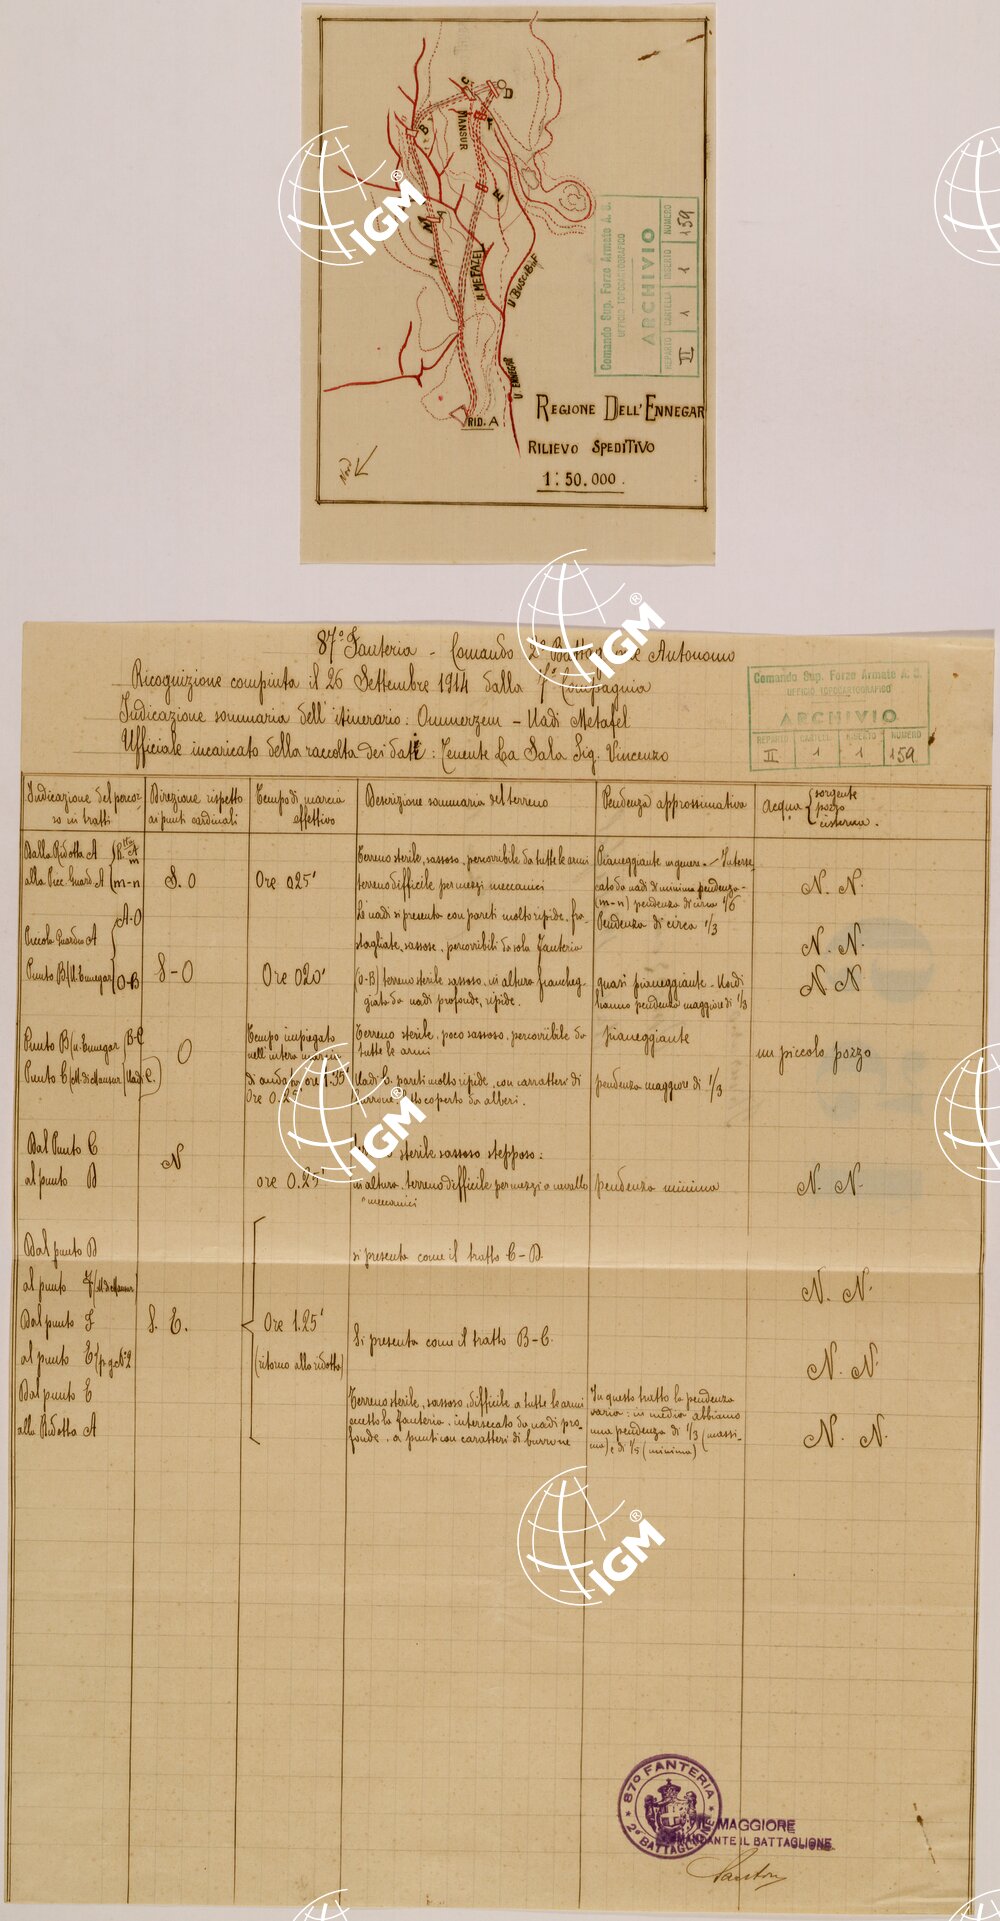 C
D
B
F
MANSUR
B
E
A
M
M
U. METAZEL
U. BUSCIBUF
U. ENNEGAR
RID. A
REGIONE DELL'ENNEGAR
RILIEVO SPEDITIVO
1:50.000.
Nord
Comando Sup. Forze Armate A. S.
UFFICIO TOPOCARTOGRAFICO
ARCHIVIO
REPARTO CARTELLA INSERTO NUMERO
II 1 1 159
IGM®
87° Fanteria - Comando 2° Battaglione Autonomo
Ricognizione compiuta il 26 Settembre 1914 dalla Compagnia
Indicazione sommaria dell'itinerario: Ommerzem - Uadi Metafel
Ufficiale incaricato della raccolta dei dati: Tenente La Sala Sig. Vincenzo
Comando Sup. Forze Armate A. S.
UFFICIO TOPOCARTOGRAFICO
ARCHIVIO
REPARTO CARTELLA INSERTO NUMERO
II 1 1 159
Indicazione del percor-
so in tratti
Direzione rispetto
ai punti cardinali
Tempo di marcia
effettivo
Descrizione sommaria del terreno
Pendenza approssimativa
Acqua { sorgente
pozzo
cisterna.
Dalla Ridotta A
alla Picc. Guard. A
m-n
S. O
Ore 0.25'
Terreno sterile, sassoso, percorribile da tutte le armi
terreno difficile per mezzi meccanici
Pianeggiante in genere - Interse-
cato da uadi di minima pendenza -
(m-n) pendenza di circa 1/6
N. N.
Piccola Guardia A
A-O
Le uadi si presenta con pareti molto ripide, fra-
stagliate, sassose, percorribili da sola fanteria
Pendenza di circa 1/3
N. N.
Punto B (U. Ennegar)
O-B
S-O
Ore 0.20'
(O-B) terreno sterile sassoso, in altura fiancheg-
giato da uadi profonde, ripide.
quasi pianeggiante - Uardi
hanno pendenza maggiore di 1/3
N N.
Punto B (u. Ennegar
Punto C (M. di Mansur
B-C
Uadi C.
O
Tempo impiegato
nell'intera marcia
di andata ore 1.35'
Ore 0.25'
Terreno sterile, poco sassoso, percorribile da
tutte le armi
Uadi C. pareti molto ripide, con carratteri di
burrone, letto coperto da alberi.
pianeggiante
pendenza maggiore di 1/3
un piccolo pozzo
Dal Punto C
al punto D
N
ore 0.25'
sterile sassoso stepposo:
in altura, terreno difficile per mezzi a cavallo
" meccanici
pendenza minima
N. N.
Dal punto D
al punto F (M. di Mansur)
si presenta come il tratto C-D.
N. N.
Dal punto F
al punto E (p.g. N°2
S. E.
Ore 1.25'
(ritorno alla ridotta)
Si presenta come il tratto B-C.
N. N.
Dal punto E
alla Ridotta A
Terreno sterile, sassoso, difficile a tutte le armi
eccetto la fanteria, intersecato da uadi pro-
fonde, a punti con caratteri di burrone
In questo tratto la pendenza
varia: in media abbiamo
una pendenza di 1/3 (massi-
ma) e di 1/5 (minima)
N. N.
87° FANTERIA
2° BATTAGLIONE
IL MAGGIORE
COMANDANTE IL BATTAGLIONE